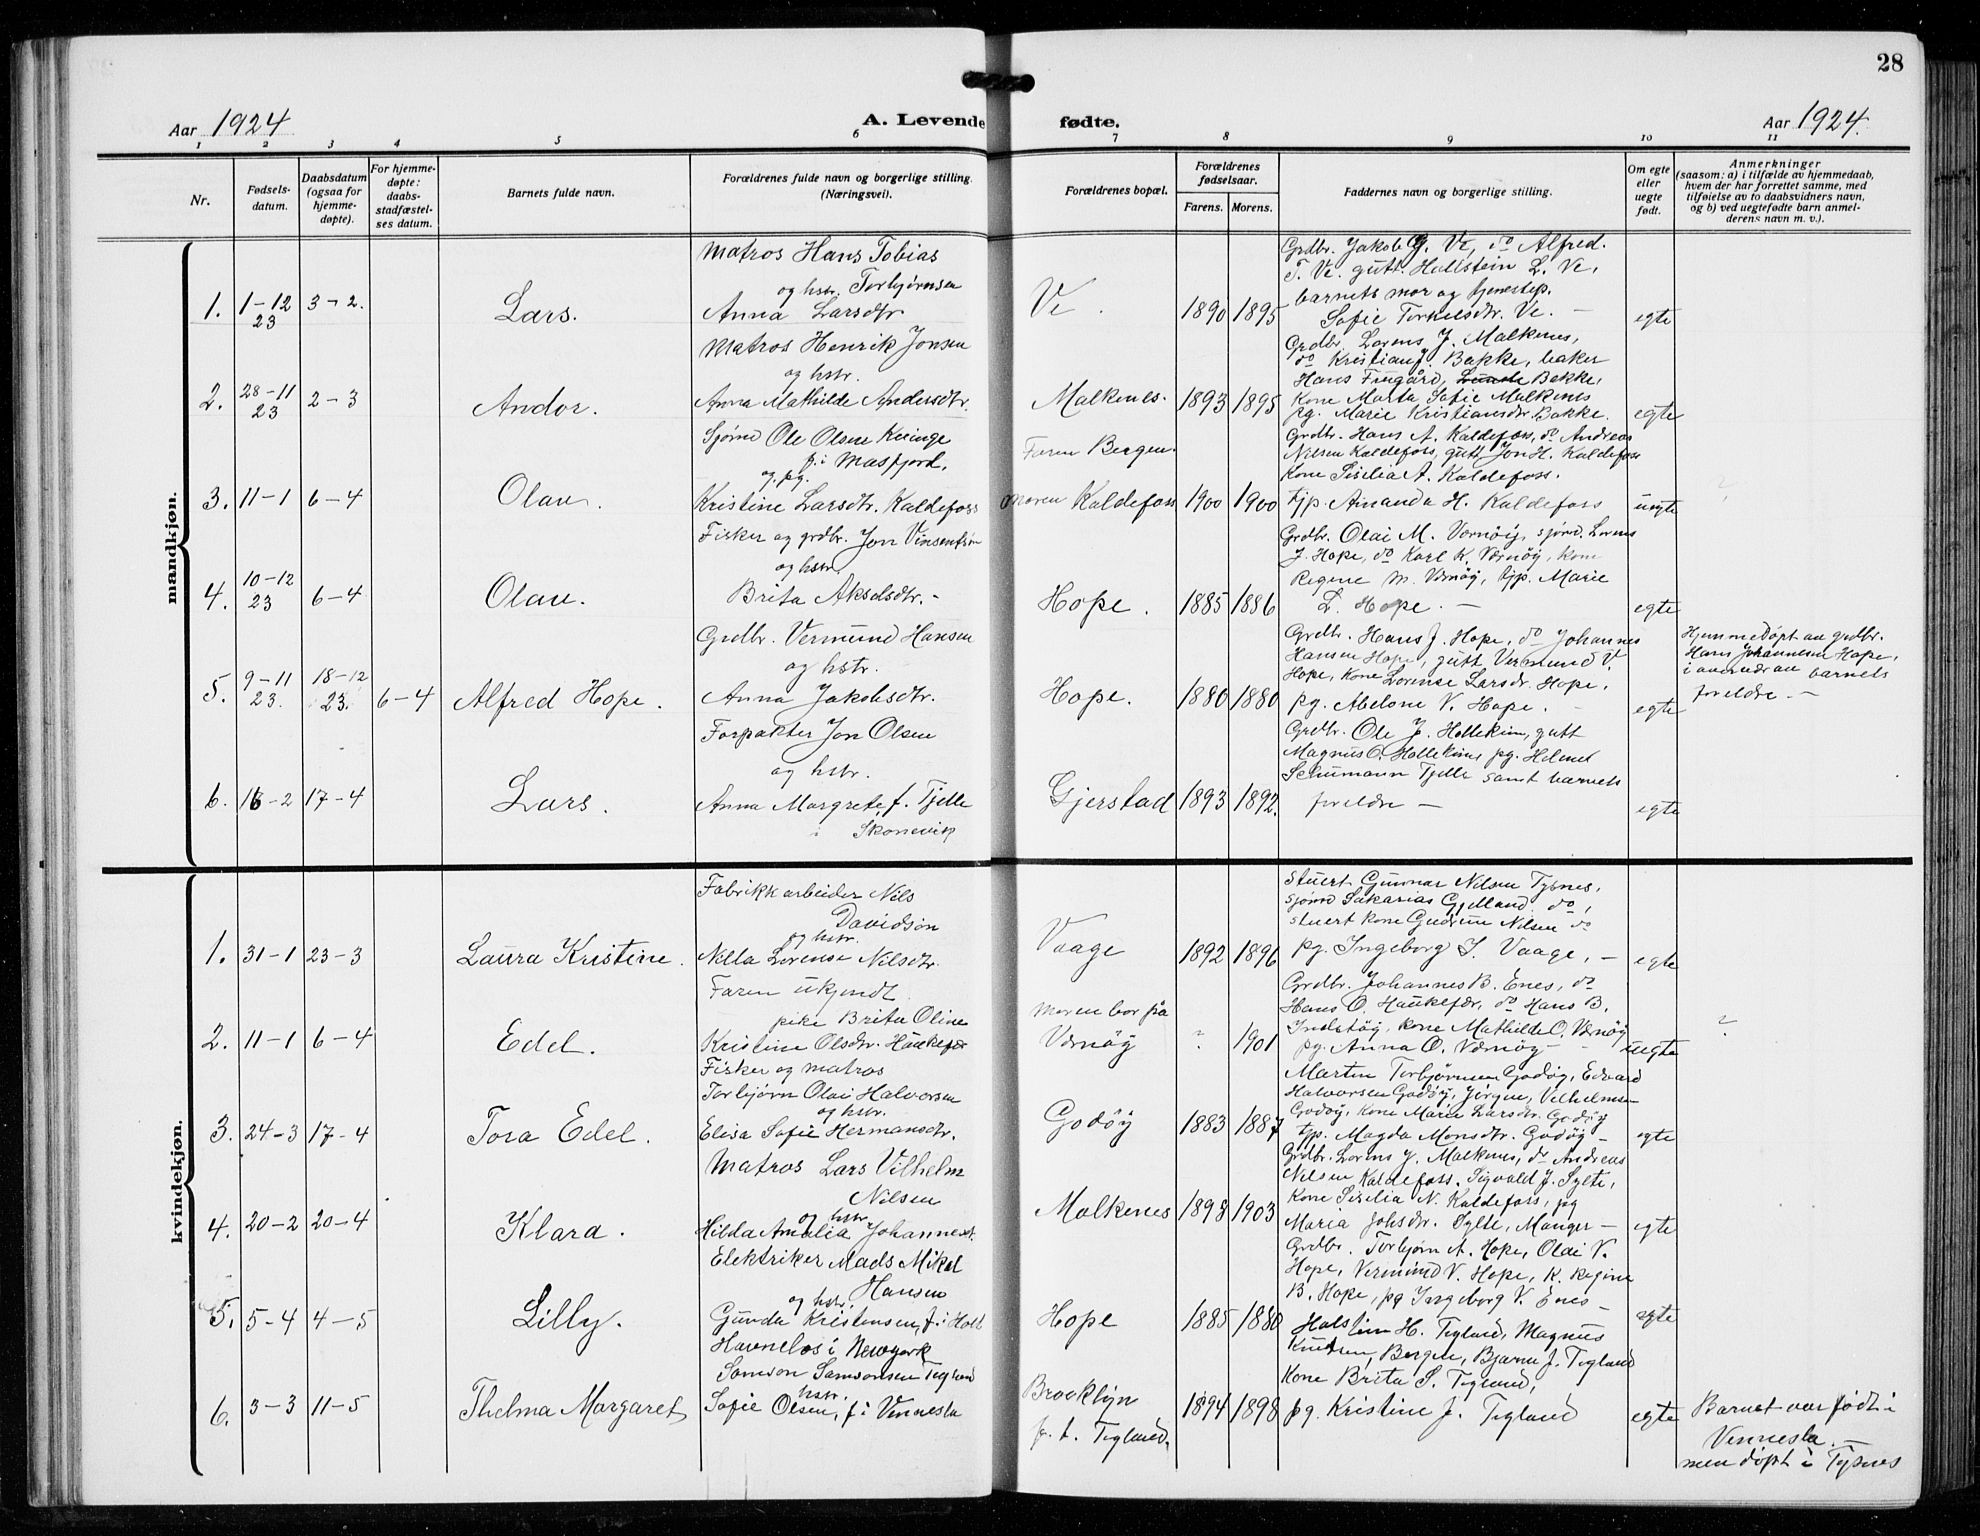 28
Aar 1924
A. Levende fødte.
Aar 1924.
1 2 3 4 5 6 7 8 9 10 11
Nr.
Fødsels-
datum.
Daabsdatum
(ogsaa for
hjemme-
døpte).
For hjemme-
døpte:
daabs-
stadfæstel-
ses datum.
Barnets fulde navn.
Forældrenes fulde navn og borgerlige stilling.
(Næringsvei).
Forældrenes bopæl.
Forældrenes
fødselsaar.
Farens. Morens.
Faddernes navn og borgerlige stilling.
Om egte
eller
uegte
født.
Anmerkninger
(saasom: a) i tilfælde av hjemmedaab,
hvem der har forrettet samme, med
tilføielse av to daabsvidners navn,
og b) ved uegtefødte barn anmel-
derens navn m. v.).
mandkjøn.
1. 1-12 23 3-2. Lars.
Matros Hans Tobias
Torbjørnsen
og hstr.
Anna Larsdtr
Ve. 1890 1895
Grdbr. Jakob G. Ve, do Alfred
T. Ve. gutt. Hallstein L. Ve,
barnets mor og tjenestep.
Sofie Torkelsdtr. Ve. —
egte
2. 28-11 23 2-3 Andor.
Matros Henrik Jonsen
og hstr.
Anna Mathilde Andersdtr.
Malkenes. 1893 1895
Grdbr. Lorens J. Malkenes,
do Kristian J. Bakke, baker
Hans Fugård, Bakke,
Kone Marta Sofie Malkenes
pg. Marie Kristiansdtr Bakke.
egte
3. 11-1 6-4 Olav.
Sjømd Ole Olsen Kvinge
f. i Masfjord.
og pg.
Kristine Larsdtr. Kaldefoss
Faren Bergen.
Moren Kaldefoss 1900 1900
Grdbr. Hans A. Kaldefoss, do Andreas
Nilsen Kaldefoss, gutt Jon H. Kaldefoss
Kone Sisilia A. Kaldefoss.
tjp. Amanda H. Kaldefoss
uegte
?
4. 10-12 23 6-4 Olav.
Fisker og grdbr. Jon Vinsentsen
og hstr.
Brita Akselsdtr. -
Hope. 1885 1886
Grdbr. Olai M. Vernøy, sjømd. Lorens
J. Hope, do Karl K. Vernøy, kone
Regine M. Vernøy, tjp. Marie
L. Hope. —
egte
5. 9-11 23. 18-12 23. 6-4 Alfred Hope.
Grdbr. Vermund Hansen
og hstr.
Anna Jakobsdtr.
Hope. 1880 1880
Grdbr. Hans J. Hope, do Johannes
Hansen Hope, gutt Vermund V.
Hope, kone Lorense Larsdr. Hope,
pg. Abelone V. Hope.
egte
Hjemmedøpt av grdbr.
Hans Johannesen Hope,
i nærvær av barnets
foreldre. —
6. 16-2 17-4 Lars.
Forpakter Jon Olsen
og hstr.
Anna Margrete, f. Tjelle
i Skonevik
Gjerstad 1893 1892.
Grdbr. Ole J. Hollekim, gutt
Magnus O. Hollekim, pg. Helene
Schumann Tjelle samt barnets
foreldre —
egte
kvindekjøn.
1. 31-1 23-3 Laura Kristine.
Fabrikkarbeider Nils
Davidson
og hstr.
Nilla Lorense Nilsdtr.
Vaage 1892 1896
Stuert Gunnar Nilsen Tysnes,
sjømd Sakarias Gjelland do,
stuert kone Gudrun Nilsen do
pg. Ingeborg S. Vaage, —
egte
2. 11-1 6-4 Edel.
Faren ukjendt.
pike Brita Oline
Kristine Olsdtr. Haukefær
Moren bor på
Vernøy ? 1901
Grdbr. Johannes B. Enes, do
Hans O. Haukefær, do Hans B.
kone Mathilde O. Vernøy
pg. Anna O. Vernøy -
uegte
?
3. 24-3 17-4 Tora Edel.
Fisker og matros
Torbjørn Olai Halvorsen
og hstr.
Elisa Sofie Hermansdtr.
Godøy 1883 1887
Martin Torbjørnsen Godøy, Edvard
Halvorsen Godøy, Jørgen Vilhelmsen
Godøy, kone Marie Larsdtr. Godøy
tjp. Magda Monsdtr. Godøy -
egte
4. 20-2 20-4 Klara.
Matros Lars Vilhelm
Nilsen
og hstr.
Hilda Amalia Johannesdt.
Malkenes 1898 1903
Grdbr. Lorens J. Malkenes, do Andreas
Nilsen Kaldefoss, Sigvald J. Sylte,
Kone Sisilia N. Kaldefoss, pg
Maria Johsdtr. Sylte, Manger —
egte
5. 5-4 4-5 Lilly.
Elektriker Mads Mikal
Hansen
og hstr.
Gunda Kristensen, f. i Holt
Hope 1885 1880
Grdbr. Torbjørn A. Hope, Olai V.
Hope, Vermund V. Hope, K. Regine
B. Hope, pg Ingeborg V. Enes -
egte
6. 3-3 11-5 Thelma Margaret
Havnelos i Newyork
Samson Samsonsen Tegland
hstr.
Sofie Olsen, f. i Vennesla
Brooklyn
f. t. Tegland. 1894 1898
Halstein H. Tegland, Magnus
Knutsen, Bergen, Bjarne J. Tegland
Kone Brita S. Tegland,
pg. Kristine J. Tegland
egte
Barnet var født i
Vennesla. —
men døpt i Tysnes